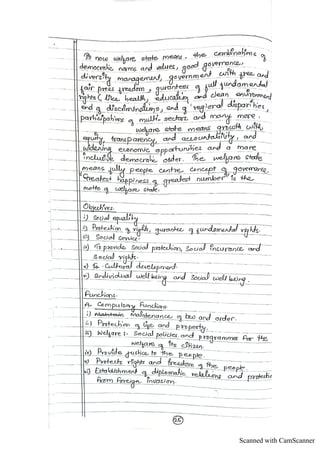 As now welfare state means, the combinations of
democratic norms and values, good governance,
diversity management, government with free and
fair press freedom, gurantees of full fundamental
rights (like health, education and clean environment
end of discriminations, end of regional disparities,
participations of multi sectors and many more.
Welfare state means growth with,
equity, transparency, and accountability, and
widening economic opportunities and a more
inclusive democratic order. The welfare state
means fully people centre concept of governance.
"Greatest happiness of greatest number" is the
motto of welfare state.
Objectives:
i) Social equality
ii) Protection of rights, gurantee of fundamental rights.
iii) Social service.
iv) To provide social protection, social insurance and
social rights.
v) So Cultural development.
vi) Individual well being and social well being.
Functions:
A. Compulsory Functions
i) Maintenance of law and order.
ii) Protection of life and property.
iii) Welfare:- Social policies and programme for the
welfare of its citizen
iv) Provide justice to the people.
v) Protects rights and freedom of the people.
vi) Establishment of diplomatic relations and protection
from foreign invasion.
25
Scanned with CamScanner